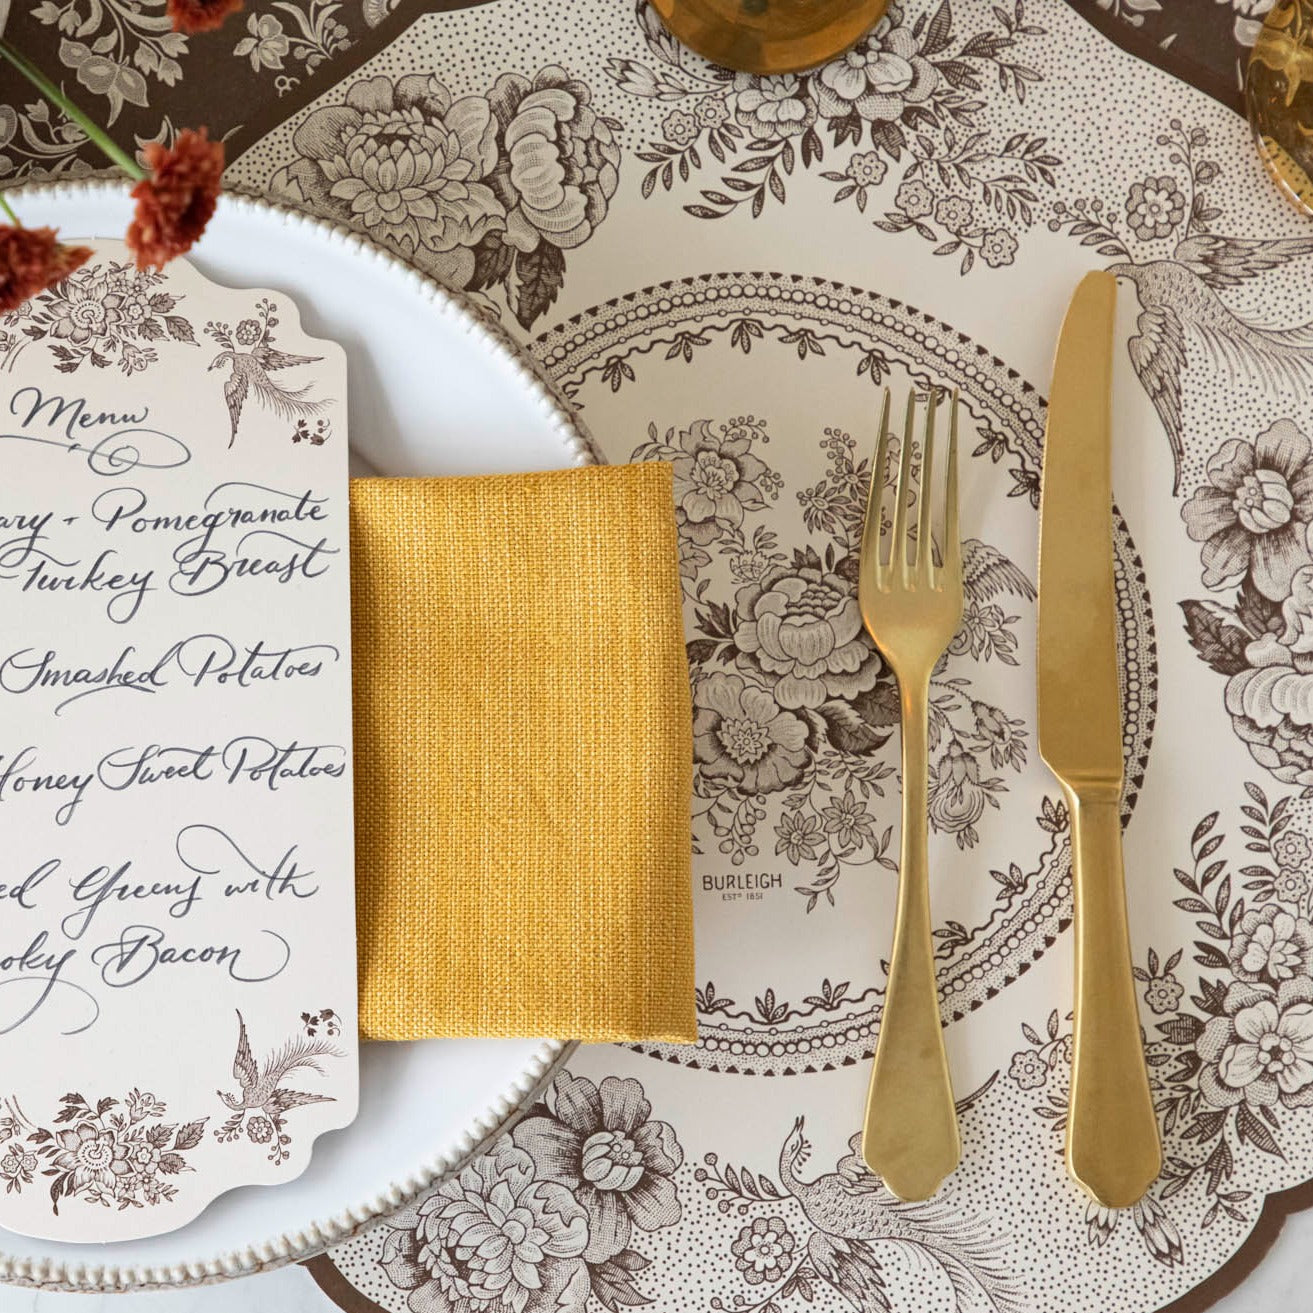 Menu
Pomegranate
Turkey Breast
Smashed Potatoes
Sweet Potatoes
Greens with
Bacon
BURLEIGH
ESTD 1851